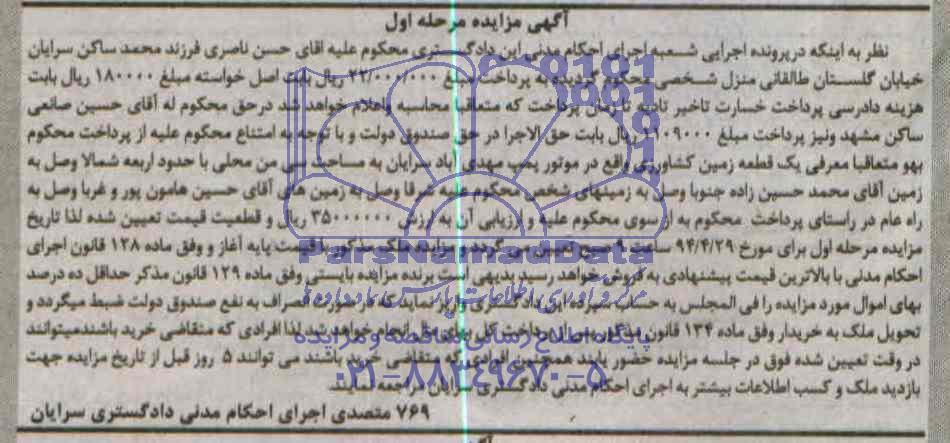 آگهی مزایده مرحله اول
نظر به اینکه در پرونده اجرایی شعبه اجرای احکام مدنی این دادگستری محکوم علیه اقای حسن ناصری فرزند محمد ساکن سرایان
خیابان گلستان طالقانی منزل شخصی محکوم گردیده به پرداخت مبلغ ۲۲/۰۰۰/۰۰۰ ریال بابت اصل خواسته مبلغ ۱۸۰۰۰۰ ریال بابت
هزینه دادرسی پرداخت خسارت تاخیر تادیه تا زمان پرداخت که متعاقبا محاسبه واعلام خواهد شد درحق محکوم له آقای حسین صانعی
ساکن مشهد ونیز پرداخت مبلغ ۱۱۰۹۰۰۰ ریال بابت حق الاجرا در حق صندوق دولت و با توجه به امتناع محکوم علیه از پرداخت محکوم
بهو متعاقبا معرفی یک قطعه زمین کشاورزی واقع در موتور پمپ مهدی آباد سرایان به مساحت سی من محلی با حدود اربعه شمالا وصل به
زمین آقای محمد حسین زاده جنوبا وصل به زمینهای شخص محکوم علیه شرقا وصل به زمین های آقای حسین هامون پور و غربا وصل به
راه عام در راستای پرداخت محکوم به از سوی محکوم علیه و ارزیابی آن به ارزش ۳۵۰۰۰۰۰۰ ریال و قطعیت قیمت تعیین شده لذا تاریخ
مزایده مرحله اول برای مورخ ۹۴/۴/۲۹ ساعت ۹ صبح تعیین می گردد و مزایده ملک مذکور با قیمت پایه آغاز و وفق ماده ۱۲۸ قانون اجرای
احکام مدنی با بالاترین قیمت پیشنهادی به فروش خواهد رسید بدیهی است برنده مزایده بایستی وفق ماده ۱۲۹ قانون مذکر حداقل ده درصد
بهای اموال مورد مزایده را فی المجلس به حساب سپرده این دادگستری واریز نماید که در صورت انصراف به نفع صندوق دولت ضبط میگردد و
تحویل ملک به خریدار وفق ماده ۱۳۴ قانون مذکور پس از پرداخت کل بهای ملک انجام خواهد شد لذا افرادی که متقاضی خرید باشندمیتوانند
در وقت تعیین شده فوق در جلسه مزایده حضور یابند همچنین افرادی که متقاضی خرید باشند می توانند ۵ روز قبل از تاریخ مزایده جهت
بازدید ملک و کسب اطلاعات بیشتر به اجرای احکام مدنی دادگستری سرایان مراجعه نمایند
۷۶۹ متصدی اجرای احکام مدنی دادگستری سرایان
ParsNamadData
پایگاه اطلاع رسانی مناقصه و مزایده
۰۲۱-۸۸۳۴۹۶۷۰-۵